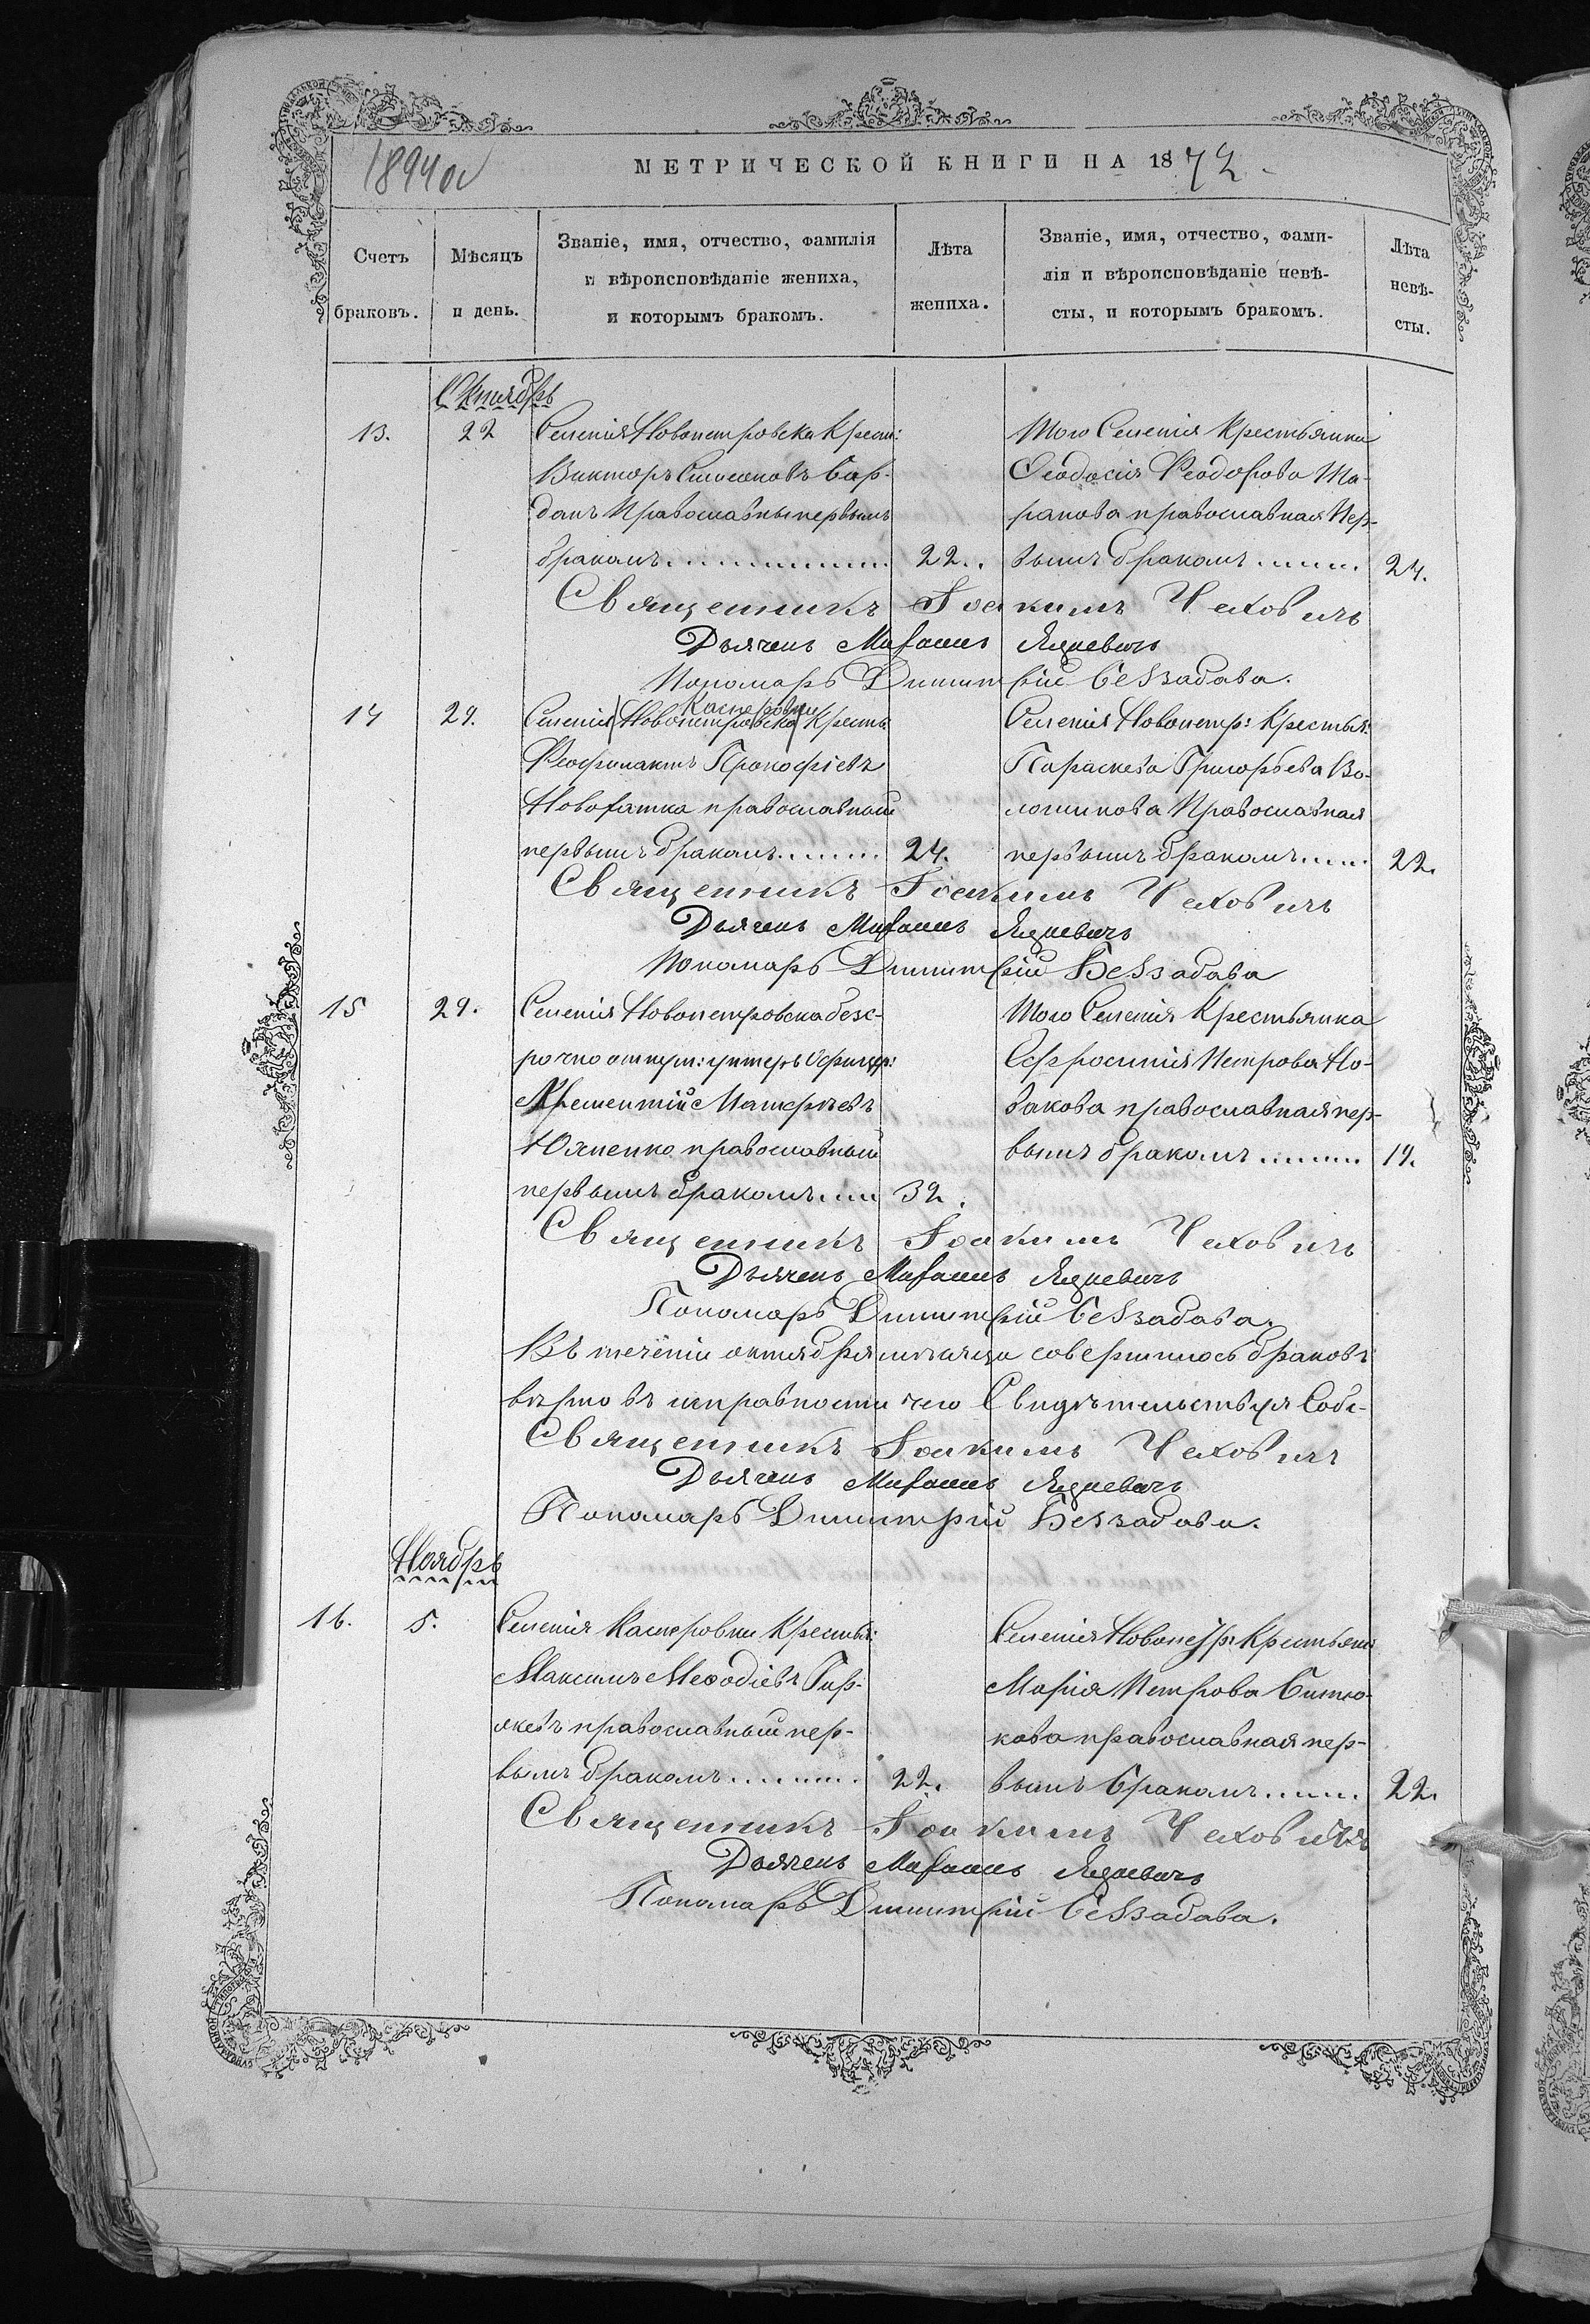 1894об
МЕТРИЧЕСКОЙ КНИГИ НА 1872.
Счетъ браковъ.
Мѣсяцъ и день.
Званіе, имя, отчество, фамилія и вѣроисповѣданіе жениха, и которымъ бракомъ.
Лѣта жениха.
Званіе, имя, отчество, фами-
лія и вѣроисповѣданіе невѣ-
сты, и которымъ бракомъ.
Лѣта невѣ-
сты.
Октябрь
13. 22 Селенія Новопетровска Крест:
Викторъ Симоновъ Бар-
данъ Православный первымъ
бракомъ 22..
Того Селенія Крестьянка
Ѳеодосія Ѳеодорова Та-
ранова православная Пер-
вымъ бракомъ 24.
Священникъ Іоакимъ Чеховичъ
Дьячекъ Михаилъ Яцкевичъ
Пономарь Димитрій Беззабава.
14 29. Селенія Новопетровска Касперовки Кресть
Ѳеофилактъ Прокофіевъ
православный
первымъ бракомъ 24.
Селенія Новопетр: Крестья:
Параскева Григорьева Во-
лошинова Православная
первымъ бракомъ 22.
Священникъ Іоакимъ Чеховичъ
Дьячекъ Михаилъ Яцкевичъ
Пономарь Димитрій Беззабава
15 29. Селенія Новопетровска безс-
рочно отпуш: унтеръ Офицер:
Климентій Матфѣевъ
Юхненко православный
первымъ бракомъ 32.
Того Селенія Крестьянка
Евфросинія Петрова Но-
вакова православная пер-
вымъ бракомъ 19.
Священникъ Іоакимъ Чеховичъ
Дьячекъ Михаилъ Яцкевичъ
Пономарь Димитрій Беззабава.
Въ теченіи октября мѣсяца совершилось браковъ
вѣрно въ исправности чего Свидѣтельствуя
Священникъ Іоакимъ Чеховичъ
Дьячекъ Михаилъ Яцкевичъ
Пономарь Димитрій Беззабава.
Ноябрь
16. 5. Селенія Касперовки Крестья:
Максимъ Меѳодіевъ
православный пер-
вымъ бракомъ 22.
Селенія Новопетр: Крестьянк
Марія Петрова Битю-
кова православная пер-
вымъ бракомъ 22.
Священникъ Іоакимъ Чеховичъ
Дьячекъ Михаилъ Яцкевичъ
Пономарь Димитрій Беззабава.